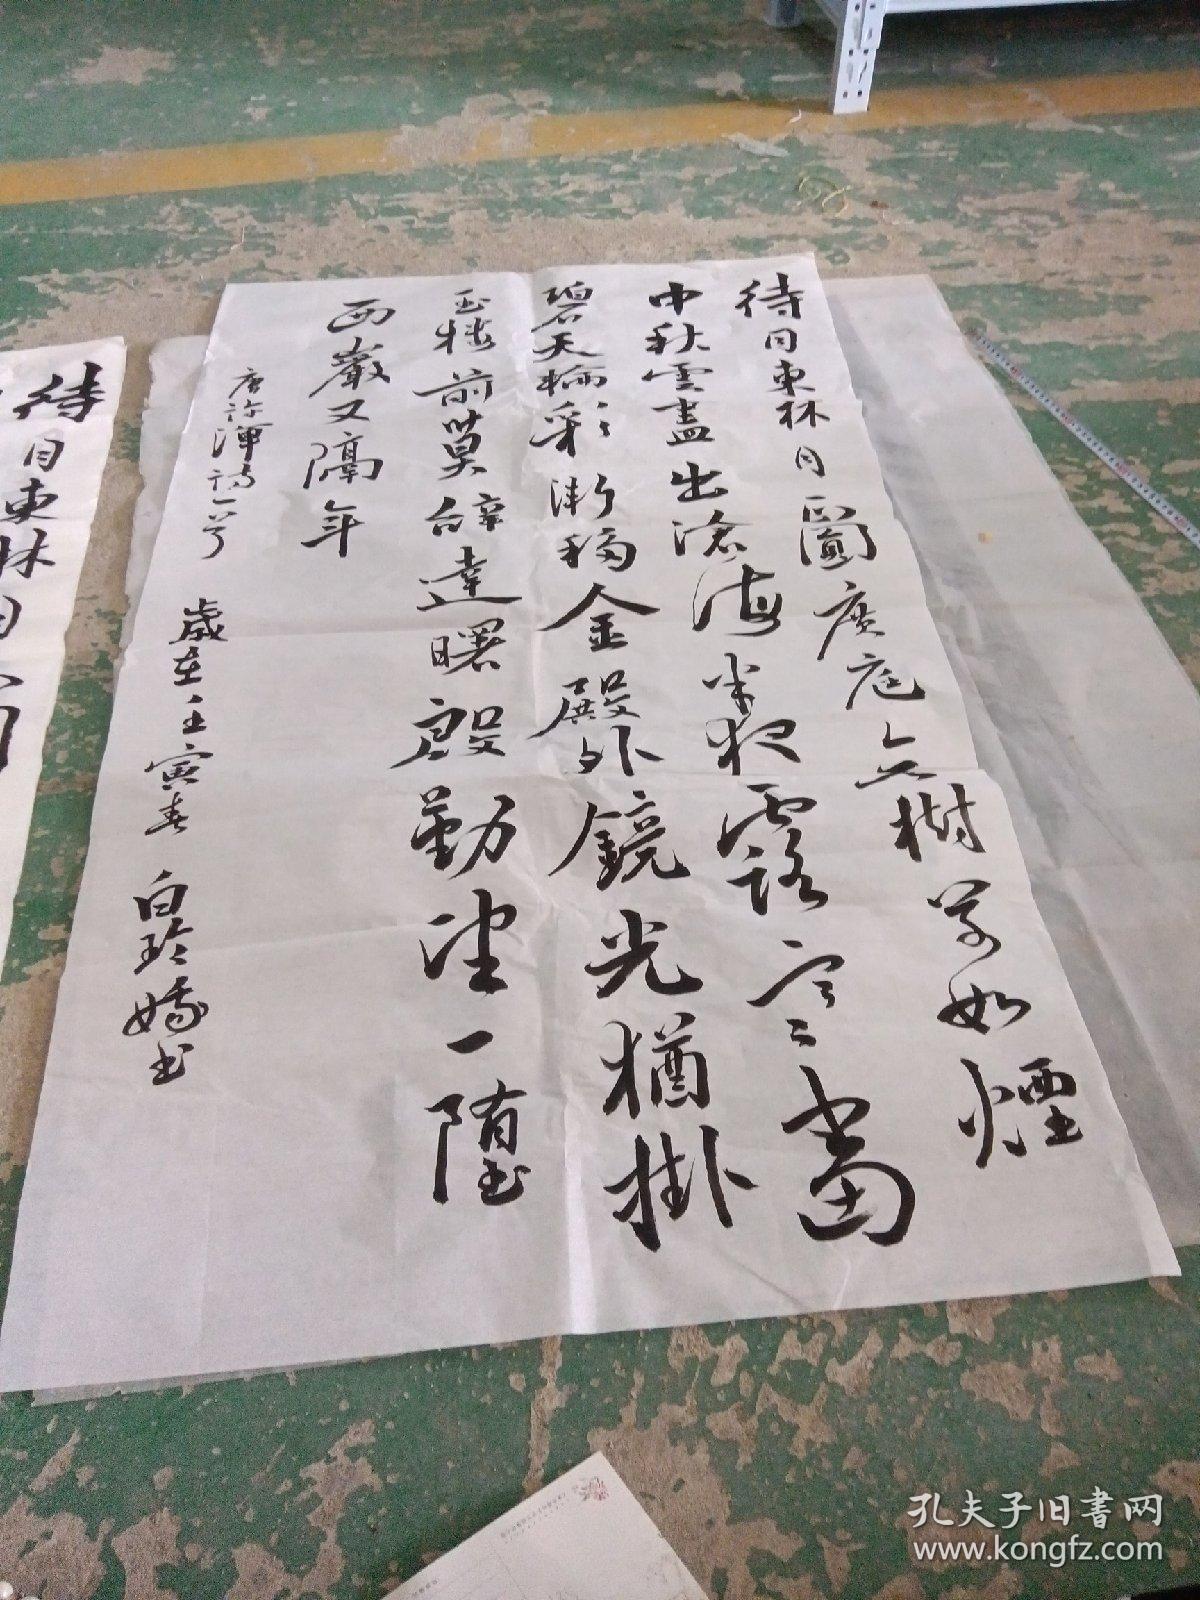 待月東林月正圓廣庭無樹草如煙
中秋雲盡出滄海半夜露寒當
碧天輪彩漸移金殿外鏡光猶掛
玉樓前莫辭達曙殷勤望一墮
西巖又隔年
唐許渾詩一首 歲在壬寅春 白玲嬌書
待月東林月
孔夫子旧書网
www.kongfz.com